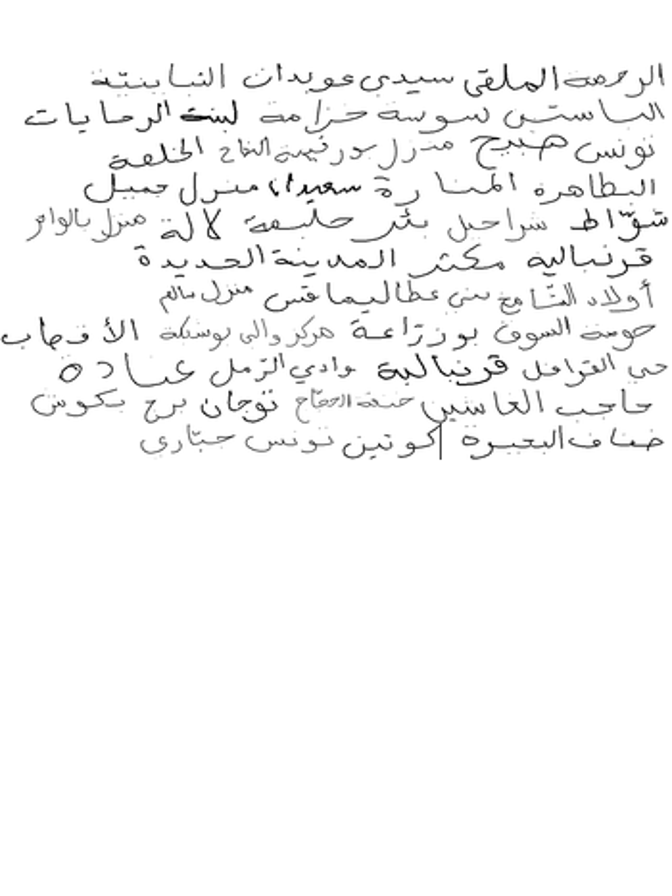 الرحمة الملقى سيدي عويدان النباينية
الباستين سوسة حزامة لبنة الرحايات
تونس هبيج منزل بورقيبة الخلفة
البطاهرة المنارة سعيدان منزل جميل
سقّاط شراحيل بئر حليمة لالة منزل
قرنبالية مكثر المدينة الجديدة
أولاد الشّامخ سي عطا ليماقس منزل سالم
حومة السوق بوزرّاعة مركز والي بوستكة
حي القرافل قرنبالية وادي الرّمل عبادة
حاجب العاسين توجان برج بكوش
ضفاف البحيرة كوتين تونس حبّاري